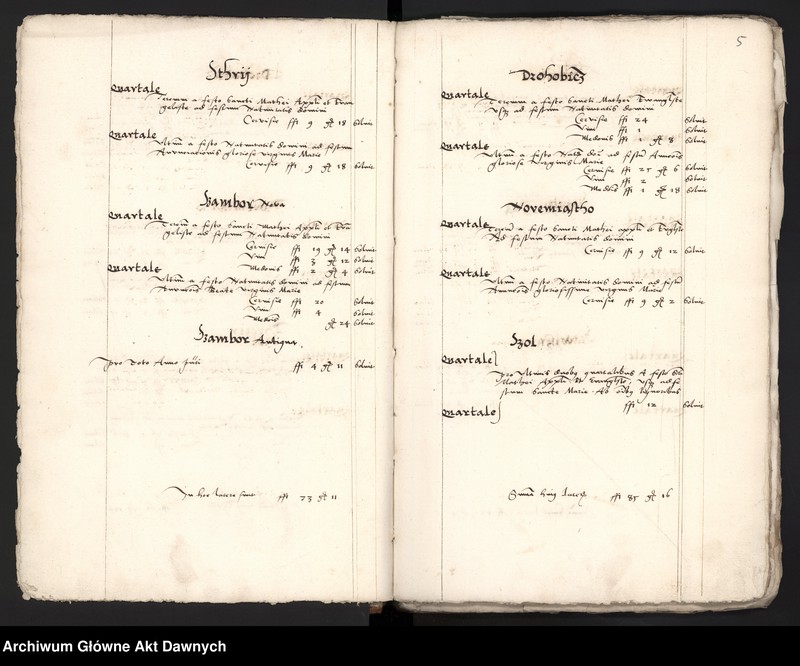 Sthrij
Quartale
Tercium a festo Sancti Mathei Appli et Evan
geliste ad festum Nativitatis domini
Cervisie ffl 9 gr 18 Solvit
Quartale
Ultim a festo Nativitatis domini ad festum
Annunciacionis gloriose virginis Marie
Cervisie ffl 9 gr 18 Solvit
Szambor Nova
Quartale
Tercium a festo Sancti Mathei Appli et Evan
geliste ad festum Nativitatis domini
Cervisie ffl 19 gr 14 Solvit
Vini ffl 3 gr 12 Solvit
Medonis ffl 2 gr 4 Solvit
Quartale
Ultim a festo Nativitatis domini ad festum
Annuncionis Beate virginis Marie
Cervisie ffl 20 Solvit
Vini ffl 4 Solvit
Medonis gr 24 Solvit
Szambor Antiqua
pro toto Anno ffl 4 gr 11 Solvit
In hoc latere sunt ffl 73 gr 11
5
Drohobicz
Quartale
Tercium a festo Sancti Mathei Evangliste
usq ad festum Nativitatis domini
Cervisie ffl 24 Solvit
Vini ffl 1 Solvit
Medonis ffl 1 gr 8 Solvit
Quartale
Ultim a festo Nativ dni ad festum
gloriose virginis Marie
Cervisie ffl 25 gr 6 Solvit
Vini ffl 2 Solvit
Medonis ffl 1 gr 18 Solvit
Novemiastho
Quartale
Tercium a festo Sancti Mathei appli et Evngliste
Ad festum Nativitatis domini
Cervisie ffl 9 gr 12 Solvit
Quartale
Ultim a festo Nativitatis domini ad festum
gloriosissime virginis Marie
Cervisie ffl 9 gr 2 Solvit
Szol
Quartale
pro Ultimis duobq quartalibus A festo Sti
Mathei Appli et Evanglste, usq ad fe
stum Sancte Marie Ab
ffl 12 Solvit
Quartale
Suma huius lateris ffl 85 gr 16
Archiwum Główne Akt Dawnych